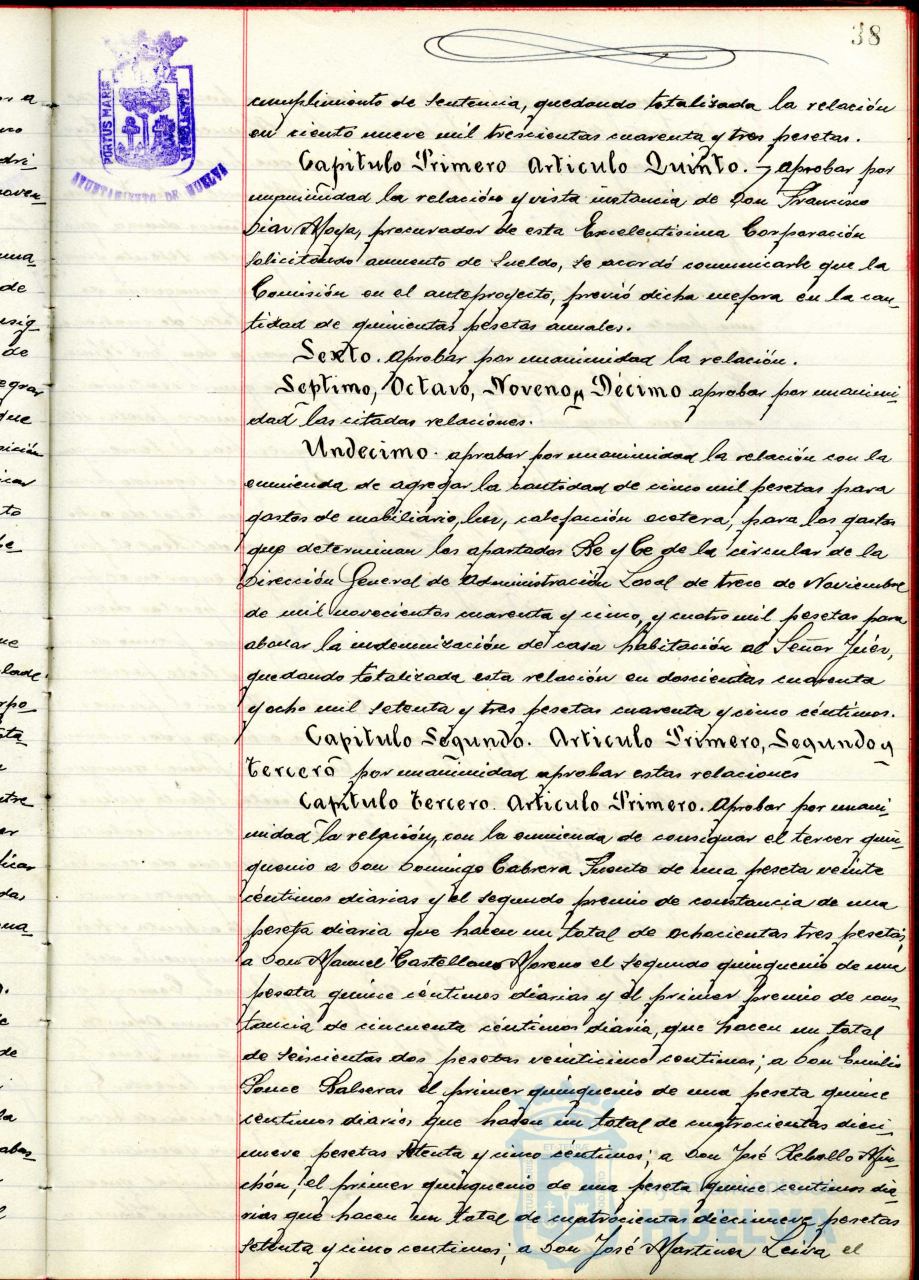 38
PORTUS MARIS
AYUNTAMIENTO DE HUELVA
cumplimiento de sentencia, quedando totalizada la relación
en ciento nueve mil trescientas cuarenta y tres pesetas.
Capitulo Primero Articulo Quinto. - Aprobar por
unanimidad la relación y vista instancia de Don Francisco
Diaz Moya, procurador de esta Excelentisima Corporación
solicitando aumento de sueldo, se acordó comunicarle que la
Comisión en el anteproyecto, previó dicha mejora en la can-
tidad de quinientas pesetas anuales.
Sexto. aprobar por unanimidad la relación.
Septimo, Octavo, Noveno y Décimo aprobar por unanimi-
dad las citadas relaciones.
Undecimo. aprobar por unanimidad la relación con la
enmienda de agregar la cantidad de cinco mil pesetas para
gastos de mobiliario, luz, calefacción ecetera, para los gastos
que determinan los apartados Be y Ce de la circular de la
Dirección General de Administración Local de trece de Noviembre
de mil novecientos cuarenta y cinco, y cuatro mil pesetas para
abonar la indemnización de casa habitación al Señor Juéz,
quedando totalizada esta relación en doscientas cuarenta
y ocho mil setenta y tres pesetas cuarenta y cinco céntimos.
Capitulo Segundo. Articulo Primero, Segundo y
Tercero por unanimidad aprobar estas relaciones
Capitulo Tercero. Articulo Primero. Aprobar por unani-
midad la relación, con la enmienda de consignar el tercer quin-
quenio a Don Domingo Cabrera Puento de una peseta veinte
céntimos diarias y el segundo premio de constancia de una
peseta diaria que hacen un total de ochocientas tres pesetas,
a Don Manuel Castellano Moreno el segundo quinquenio de una
peseta quince céntimos diarias y el primer premio de cons-
tancia de cincuenta céntimos diaria, que hacen un total
de seiscientas dos pesetas veinticinco centimos; a Don Emilio
Ponce Balseras el primer quinquenio de una peseta quince
centimos diarios que hacen un total de cuatrocientas dieci-
nueve pesetas setenta y cinco céntimos; a Don José Rebollo Min-
chón, el primer quinquenio de una peseta quince centimos dia-
rias que hacen un total de cuatrocientas diecinueve pesetas
setenta y cinco centimos; a Don José Martinez Leiva el
HUELVA